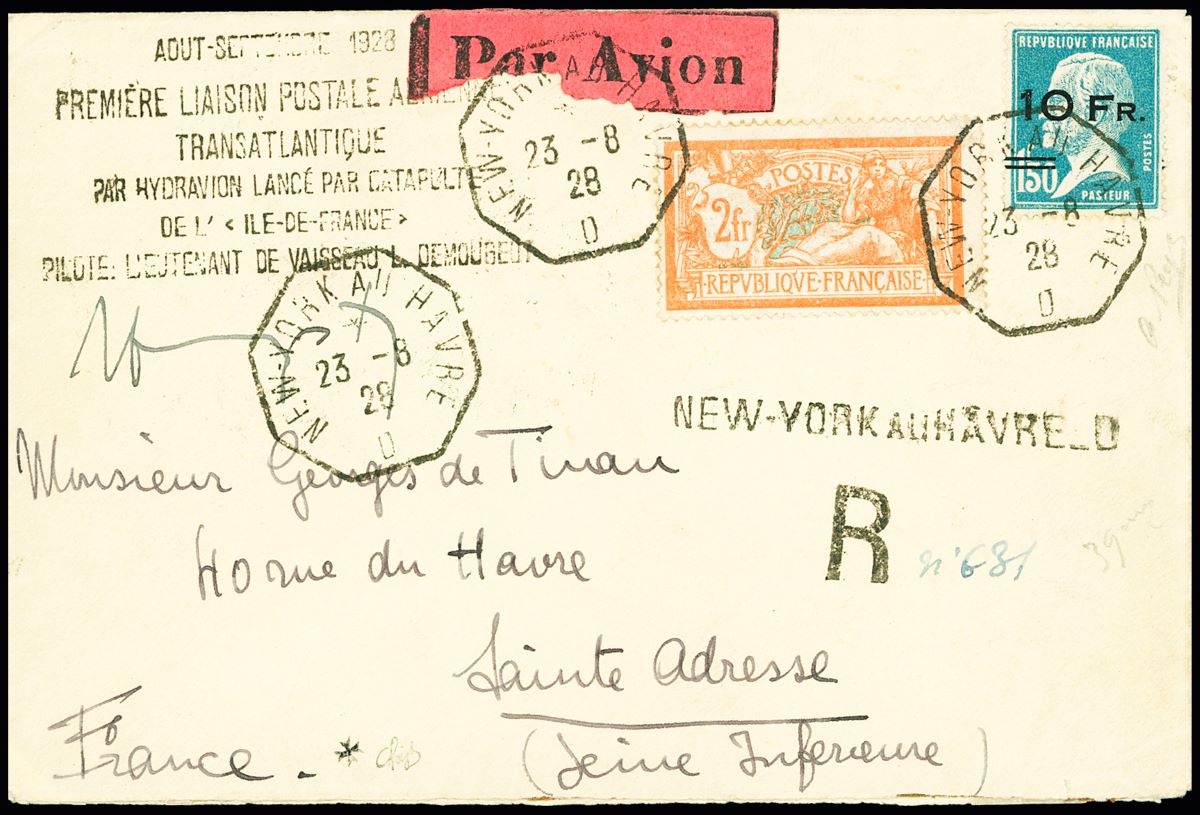 AOUT-SEPTEMBRE 1928
PREMIÈRE LIAISON POSTALE AERIENNE
TRANSATLANTIQUE
PAR HYDRAVION LANCÉ PAR CATAPULTE
DE L' < ILE-DE-FRANCE >
PILOTE: LIEUTENANT DE VAISSEAU L. DEMOUGEOT
Par Avion
NEW-YORK AU HAVRE
23 -8
28
D
POSTES
2fr
REPVBLIQVE·FRANÇAISE
REPVBLIQUE FRANÇAISE
10 FR.
1F50
POSTES
PASTEUR
NEW-YORK AU HAVRE
23 -8
28
D
NEW-YORK AU HAVRE
23 -8
28
D
NEW-YORK AU HAVRE L D
Monsieur Georges de Tinan
40 rue du Havre
R n° 631
Sainte Adresse
(Seine Inférieure)
France.